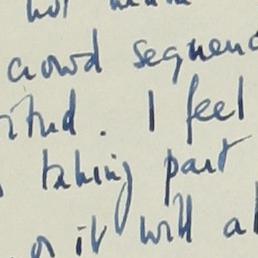 not
crowd sequenc
itud. I feel
taking part
or it will al